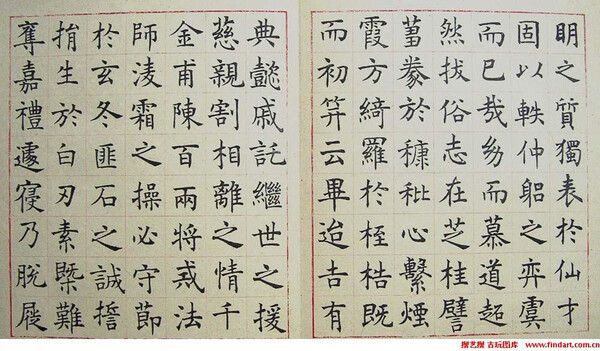 明之質獨表於仙才
固以軼仲躳之弈虞
而已哉幼而慕道超
然拔俗志在芝桂譬
蒭豢於糠秕心繫煙
霞方綺羅於桎梏既
而初笄云畢迨吉有
典懿戚託繼世之援
慈親割相離之情千
金甫陳百兩將戒法
師淩霜之操必守節
於玄冬匪石之誠誓
捐生於白刃素槩難
奪嘉禮遽寢乃脫屣
搜艺搜 古玩图库 www.findart.com.cn